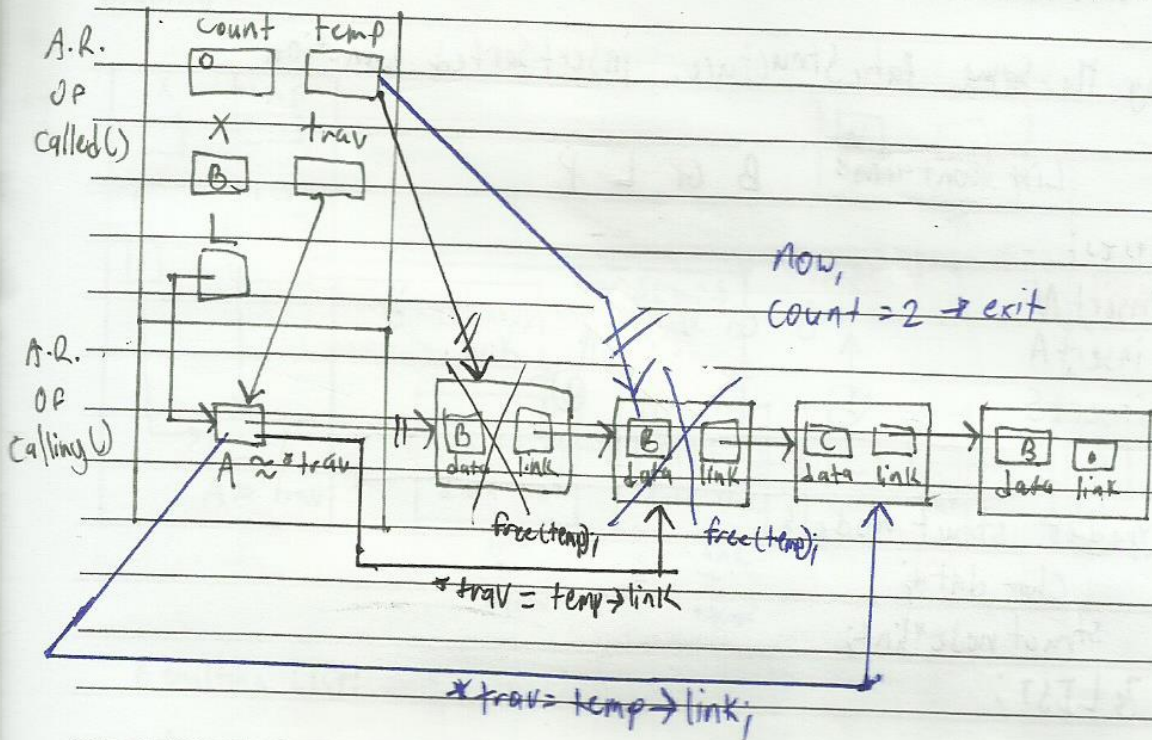 A.R.
OF
Called()
count temp
0
X trav
B
L
now,
count = 2 → exit
A.R.
OF
Calling()
A ≈ *trav
B
data link
B
data link
C
data link
B
data link
free(temp);
free(temp);
*trav = temp→link
*trav = temp→link;